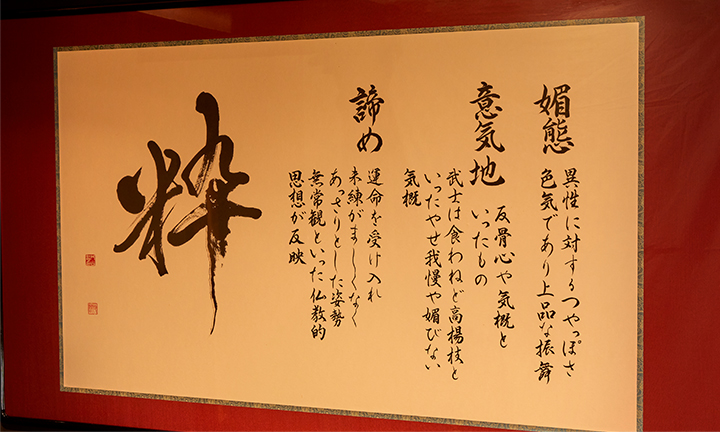 媚態
異性に対するつやっぽさ
色気であり上品な振舞
意気地
反骨心や気概と
いったもの
武士は食わねど高楊枝と
いったやせ我慢や媚びない
気概
諦め
運命を受け入れ
未練がましくなく
あっさりとした姿勢
無常観といった仏教的
思想が反映
粋